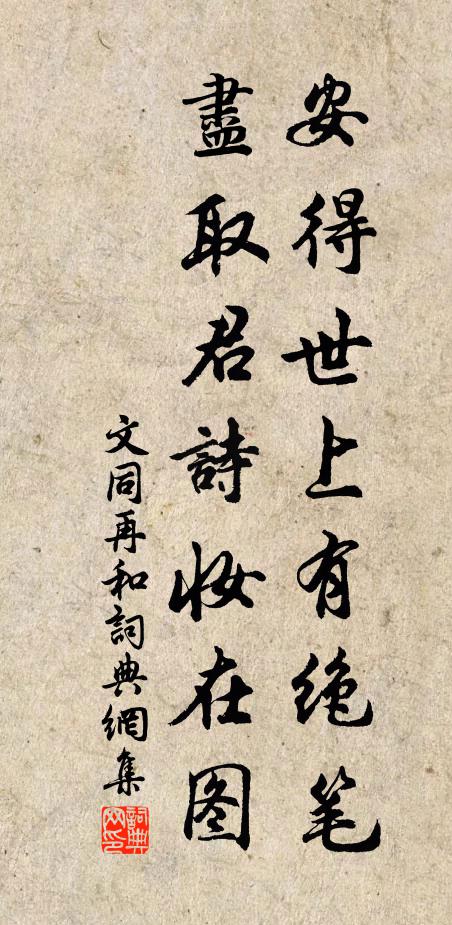 安得世上有绝笔
盡取君詩妆在图
文同再和詞典網集
詞典网印